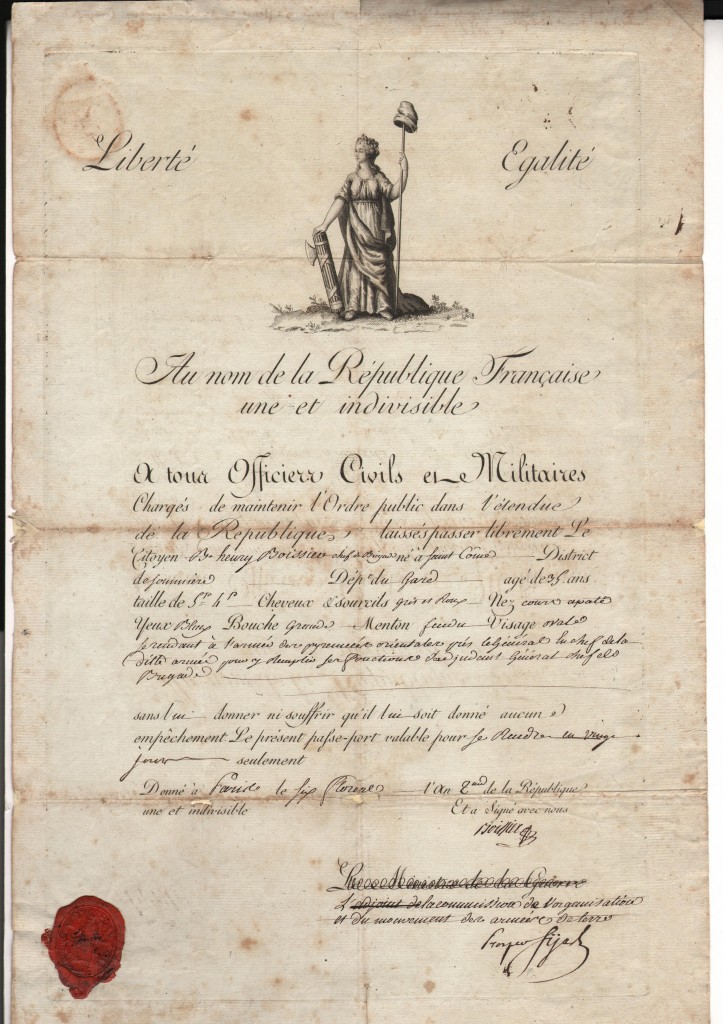 Liberté Egalité
Au nom de la République Française
une et indivisible
A tous Officiers Civils et Militaires
Chargés de maintenir l'Ordre public dans l'étendue
de la République, laissés passer librement Le
Citoyen Bn henry Boissier chef de Brigade né à Saint Come District
de Sommière Dépt du Gard agé de 35 ans
taille de 5 ps 4 ps Cheveux & sourcils gris et Roux Nez court
Yeux Bleux Bouche Grande Menton Visage ovale
se rendant à l'armée des pyrennées orientales près le Général en chef de la
dite armée pour y Remplir ses fonctions d'adjudant Général chef de
Brigade
sans lui donner ni souffrir qu'il lui soit donné aucun
empêchement. Le présent passe-port valable pour se Rendre en vingt
jours seulement
Donné à Paris le six floréal l'An 2 de la République
une et indivisible Et a Signé avec nous
Boissier
Le Ministre de la Guerre
L'adjoint de la commission de l'organisation
et du mouvement des armées de terre
Prosper Sijas